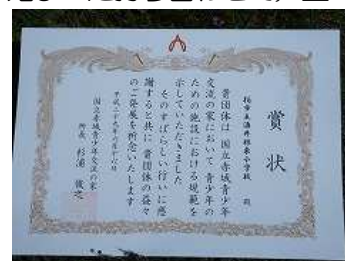 賞状
柏市立酒井根東小学校 殿
貴団体は国立赤城青少年
交流の家において青少年の
ための施設における規範を
示していただきました
そのすばらしい行いに感
謝すると共に貴団体の益々
のご発展を祈念いたします
平成二十九年六月十六日
国立赤城青少年交流の家
所長